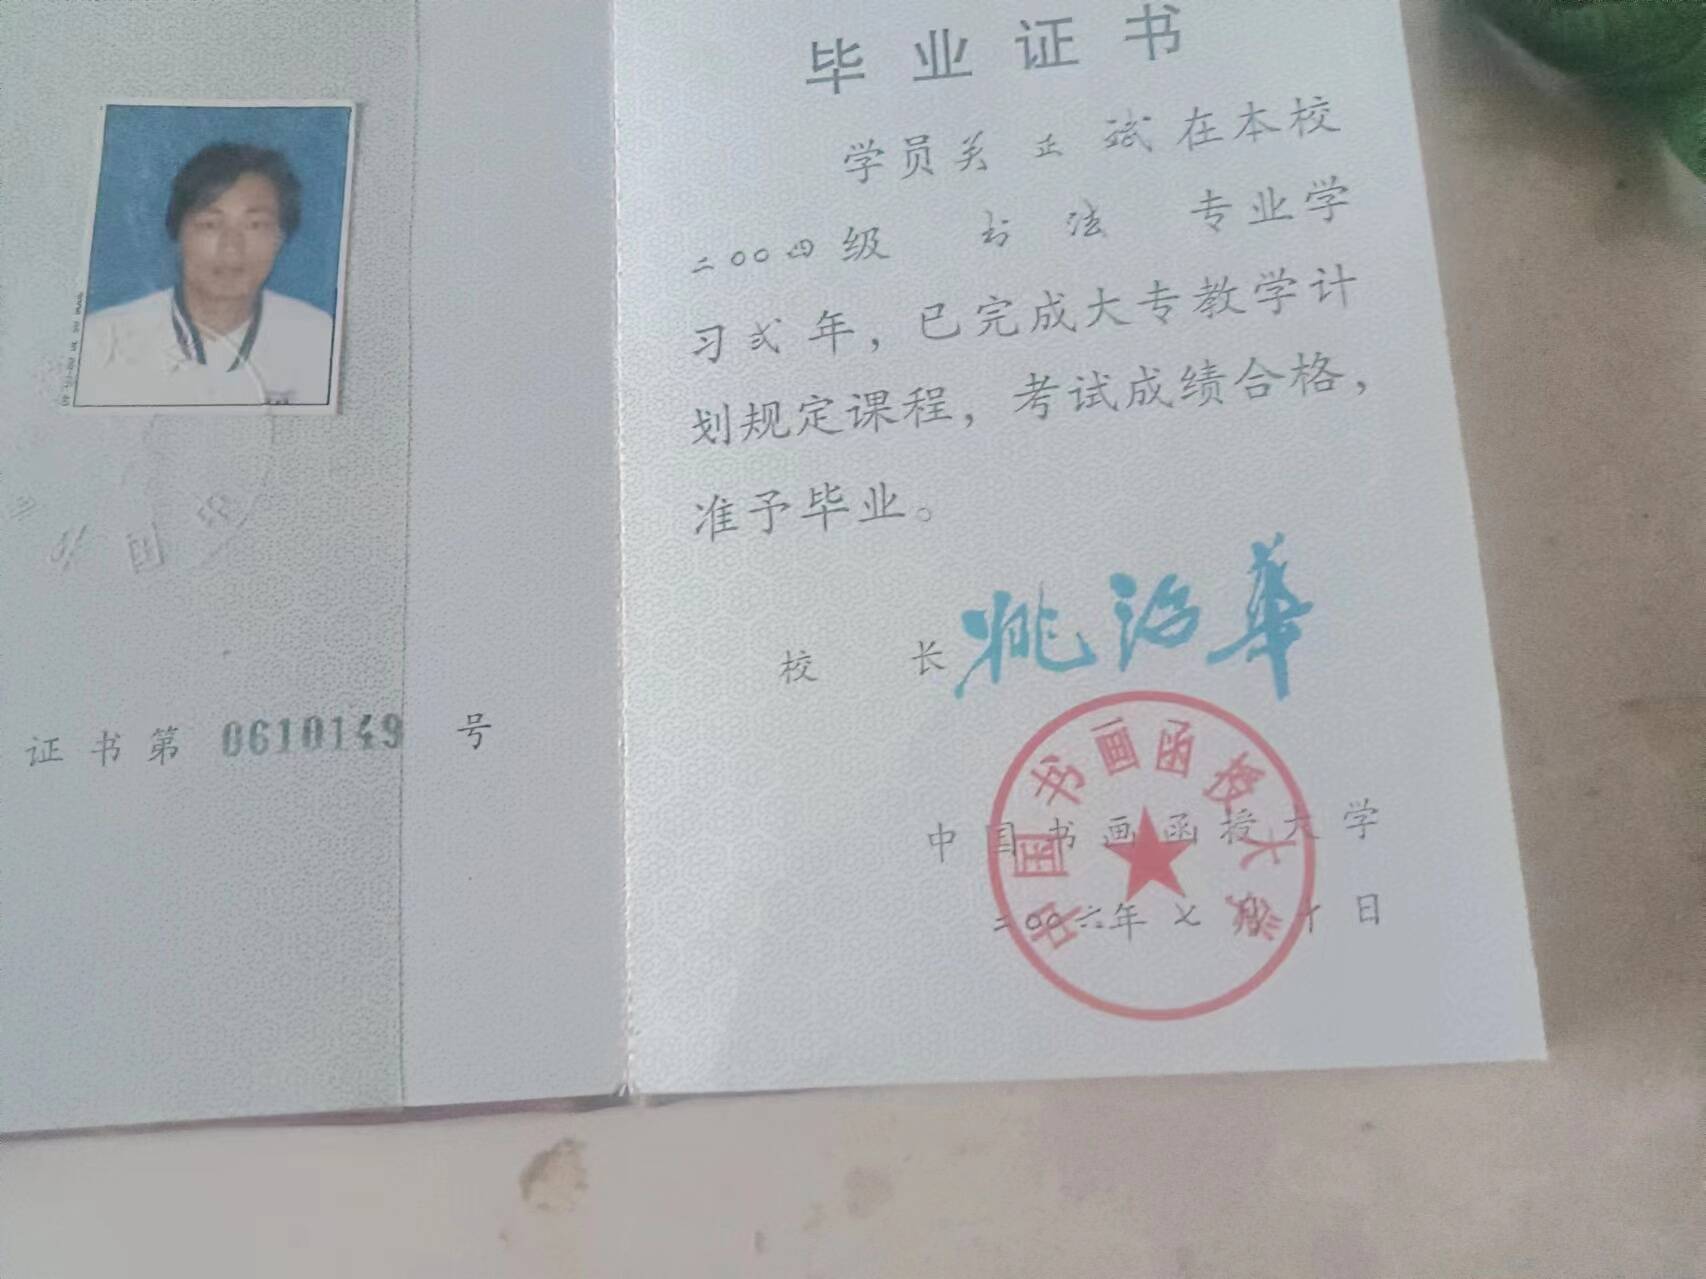 证书第 0610149 号
毕业证书
学员关正斌在本校
二〇〇四级 书法 专业学
习贰年，已完成大专教学计
划规定课程，考试成绩合格，
准予毕业。
校 长 姚治华
中国书画函授大学
二〇〇六年七月十日
中国书画函授大学